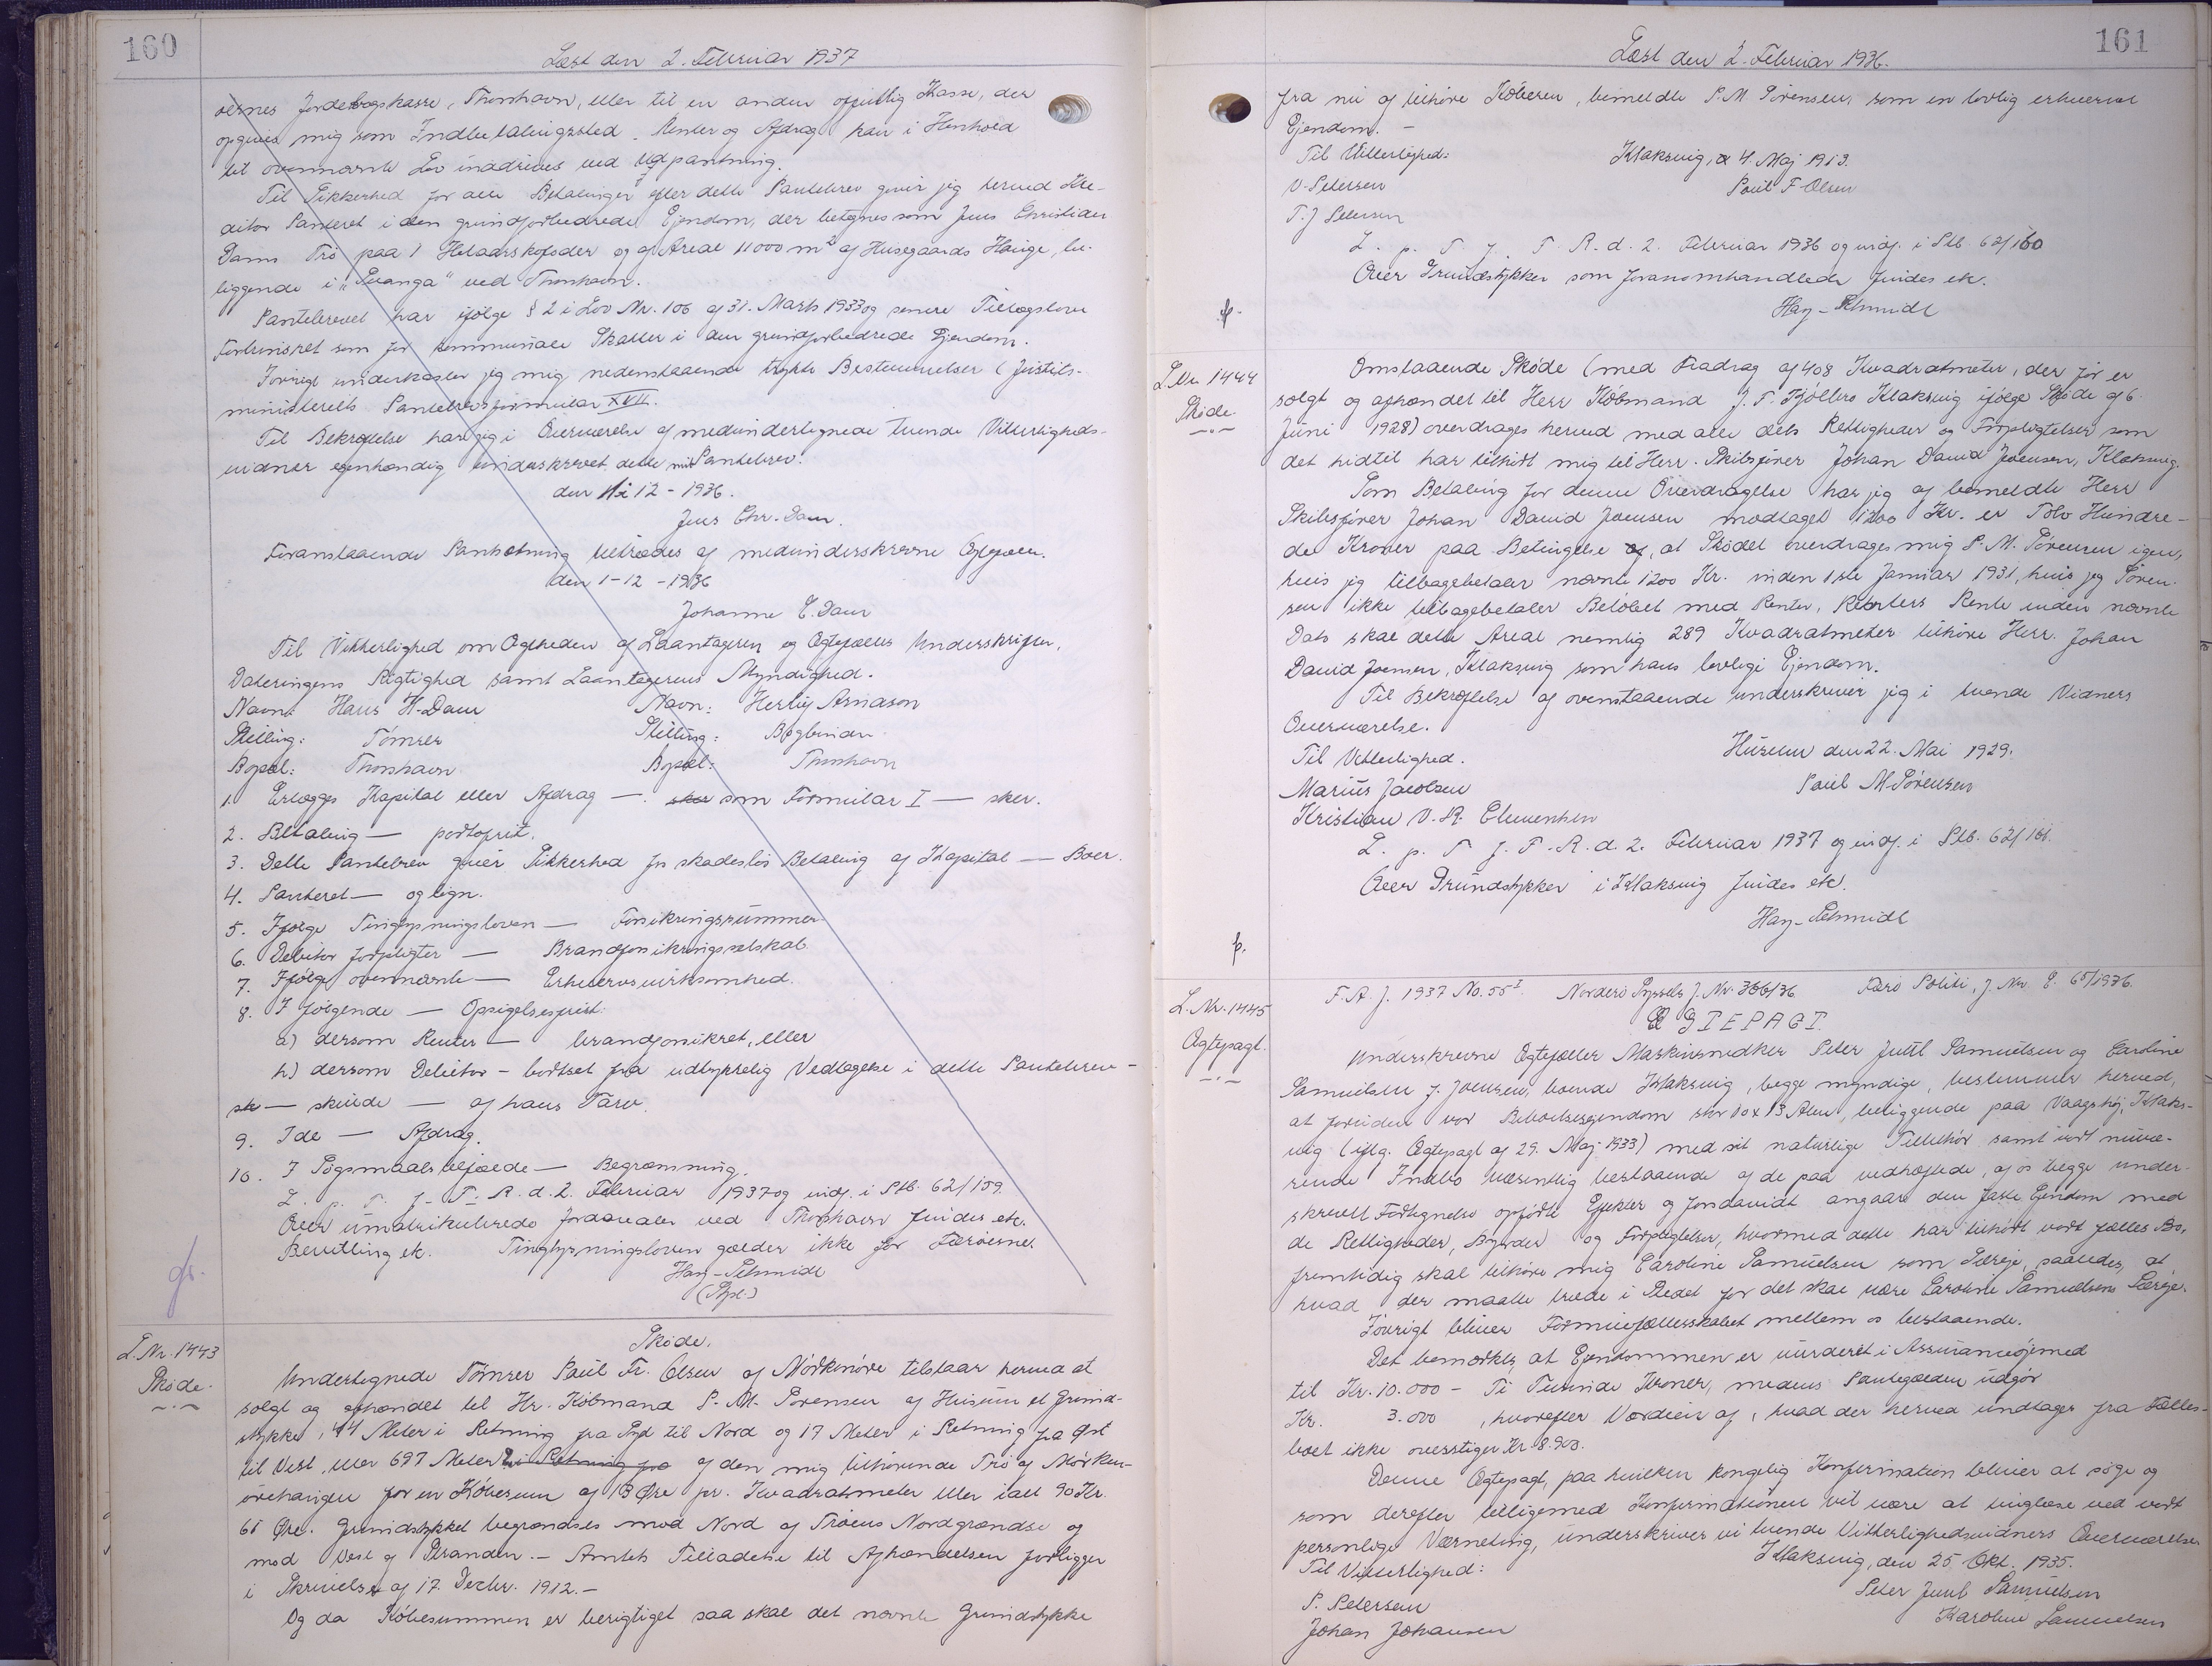 160
Læst den 2. Februar 1937
vernes Jordebogskasse, Thorshavn, eller til en anden offentlig Kasse, der
opgives mig som Indbetalingssted. Renter og Afdrag kan i Henhold
til ovennævnte Lov inddrives ved Udpantning.
Til Sikkerhed for alle Betalinger efter dette Pantebrev giver jeg herved Kre-
ditor Panteret i den grundforbedrede Ejendom, der betegnes som Jens Christian
Dams Trö paa 1 Helaarskofoder og af Areal 11000 m² af Husegaards Hauge, be-
liggende i "Svanga" ved Thorshavn.
Pantebrevet har ifölge § 2 i Lov Nr. 106 af 31. Marts 1933 og senere Tillægslove
Fortrinsret som for kommunale Skatter i den grundforbedrede Ejendom.
Forövrigt underkaster jeg mig nedenstaaende trykte Bestemmelser (Justits-
ministeriets Pantebrevsformular XVII.
Til Bekræftelse har jeg i Overværelse af medundertegnede tvende Vitterligheds-
vidner egenhændig underskrevet dette mit Pantebrev.
den 1/12 - 1936.
Jens Chr. Dam.
Foranstaaende Pantsætning tiltrædes af medunderskrevne Ægtefælle.
den 1-12 - 1936
Johanne E. Dam
Til Vitterlighed om Ægtheden af Laantageren og Ægtefælles Underskrifter,
Dateringens Rigtighed samt Laantagerens Myndighed.
Navn: Hans H. Dam Navn: Herluf Arnason
Stilling: Tömrer Stilling: Bogbinder
Bopæl: Thorshavn Bopæl: Thorshavn
1. Erlægges Kapital eller Afdrag —. sker som Formular I — sker.
2. Betaling — portofrit.
3. Dette Pantebrev giver Sikkerhed for skadeslös Betaling af Kapital — Boer.
4. Panteret — og lign.
5. Ifölge Tinglysningsloven — Forsikringssummer
6. Debitor forpligter — Brandforsikringsselskab.
7. Ifölge ovennævnte — Erhvervsvirksomhed.
8. I fölgende — Opsigelsesfrist:
a) dersom Renter — brandforsikret, eller
h) dersom Debitor - bortset fra udtrykkelig Vedtagelse i dette Pantebrev -
sk — skeende — af hans Tarv.
9. I de — Afdrag.
10. I Sögsmaalstilfælde — Begrænsning.
L. p. T. f. T. R. d. 2. Februar 1937 og indf. i Sktb. 62/159.
Over umatrikulerede Jordarealer ved Thorshavn findes etc.
Bevilling etc. Tinglysningsloven gælder ikke for Færöerne.
Hay-Schmidt
gr.
L. Nr. 1443
Sköde.
Sköde.
Undertegnede Tömrer Paul Fr. Olsen af Nördkinöre tilstaar herved at
solgt og afhændet til Hr. Köbmand P. M. Sörensen af Husum et Grund-
stykke, 41 Meter i Retning fra Syd til Nord og 17 Meter i Retning fra Öst
til Vest, eller 697 Meter² i Retning fra af den mig tilhörende Trö af Mörken-
örehaugen for en Köbesum af 13 Öre pr. Kvadratmeter eller ialt 90 Kr.
61 Öre. Grundstykket begrændses mod Nord af Tröens Nordgrændse og
mod Vest af Stranden. - Amtets Tilladelse til Afhændelsen foreligger
i Skrivelse af 17. Decbr. 1912. -
Og da Köbesummen er berigtiget saa skal det nævnte Grundstykke
161
Læst den 2. Februar 1936.
fra nu af tilhöre Köberen, bemeldte P. M. Sörensen, som en lovlig erhvervet
Ejendom. -
Til Vitterlighed: Klaksvig, d. 4. Maj 1913.
V. Petersen Paul F. Olsen
T. J. Petersen
L. p. T. f. T. R. d. 2. Februar 1936 og indf. i Sktb. 62/160
Over Grundstykker som foranomhandlede findes etc.
Hay-Schmidt
L. Nr. 1444
Sköde
Omstaaende Sköde (med Fradrag af 408 Kvadratmeter, der för er
solgt og afhændet til Herr Köbmand J. F. Kjölbro Klaksvig ifölge Sköde af 6.
Juni 1928) overdrages herved med alle dets Rettigheder og Forpligtelser som
det hidtil har tilhört mig til Herr. Skibsförer Johan David Joensen, Klaksvig.
Som Betaling for denne Overdragelse har jeg af bemeldte Herr
Skibsförer Johan David Joensen modtaget 1200 Kr. er Tolv Hundre-
de Kroner paa Betingelse af, at Sködet overdrages mig P. M. Sörensen igen,
hvis jeg tilbagebetaler nævnte 1200 Kr. inden 1ste Januar 1931, hvis jeg Sören-
sen ikke tilbagebetaler Belöbet med Renter, Renters Rente inden nævnte
Dato skal dette Areal nemlig 289 Kvadratmeter tilhöre Herr. Johan
David Joensen, Klaksvig som hans lovlige Ejendom.
Til Bekræftelse af ovenstaaende underskriver jeg i tvende Vidners
Overværelse.
Til Vitterlighed. Husum den 22. Mai 1929.
Marius Jacobsen Paul M. Sörensen
Kristian V. R. Clementsen
L. p. T. f. T. R. d. 2. Februar 1937 og indf. i Sktb. 62/161.
Over Grundstykker i Klaksvig findes etc.
Hay-Schmidt
L. Nr. 1445
Ægtepagt.
F. A. J. 1937 No. 55¹. Norderö Syssels J. Nr. 366/36 Færö Politi, J. Nr. E. 65/1936.
ÆGTEPAGT.
Underskrevne Ægtefæller Maskinsmedker Peter Juul Samuelsen og Caroline
Samuelsen f. Joensen, boende Klaksvig, begge myndige, bestemmer herved,
at foruden vor Beboelsesejendom stor 10 x 13 Alen, beliggende paa Vaagshöj, Klaks-
vig (iflg. Ægtepagt af 29. Maj 1933) med sit naturlige Tilbehör samt vort nuvæ-
rende Indbo væsentlig bestaaende af de paa vedhæftede, af os begge under-
skrevet Fortegnelse opförte Effekter og forsaavidt angaar den faste Ejendom med
de Rettigheder, Byrder og Forpligtelser, hvormed dette har tilhört vort fælles Bo,
fremtidig skal tilhöre mig Caroline Samuelsen som Særeje, saaledes, at
hvad der maatte træde i Stedet for det skal være Caroline Samuelsens Særeje.
Iövrigt bliver Formuefællesskabet mellem os bestaaende.
Det bemærkes, at Ejendommen er vurderet i Assuranceöjemed
til Kr. 10.000 - Ti Tusinde Kroner, medens Pantegælden udgör
Kr. 3.000, hvorefter Værdien af, hvad der herved undtages fra Fælles-
boet ikke overstiger Kr. 8.900.
Denne Ægtepagt, paa hvilken kongelig Konfirmation bliver at söge og
som derefter tilligemed Konfirmationen vil være at tinglæse ved vort
personlige Værneting, underskriver vi tvende Vitterlighedsvidners Overværelse
Til Vitterlighed: Klaksvig, den 25. Okt. 1935.
P. Petersen Peter Juul Samuelsen
Johan Johansen Karoline Samuelsen